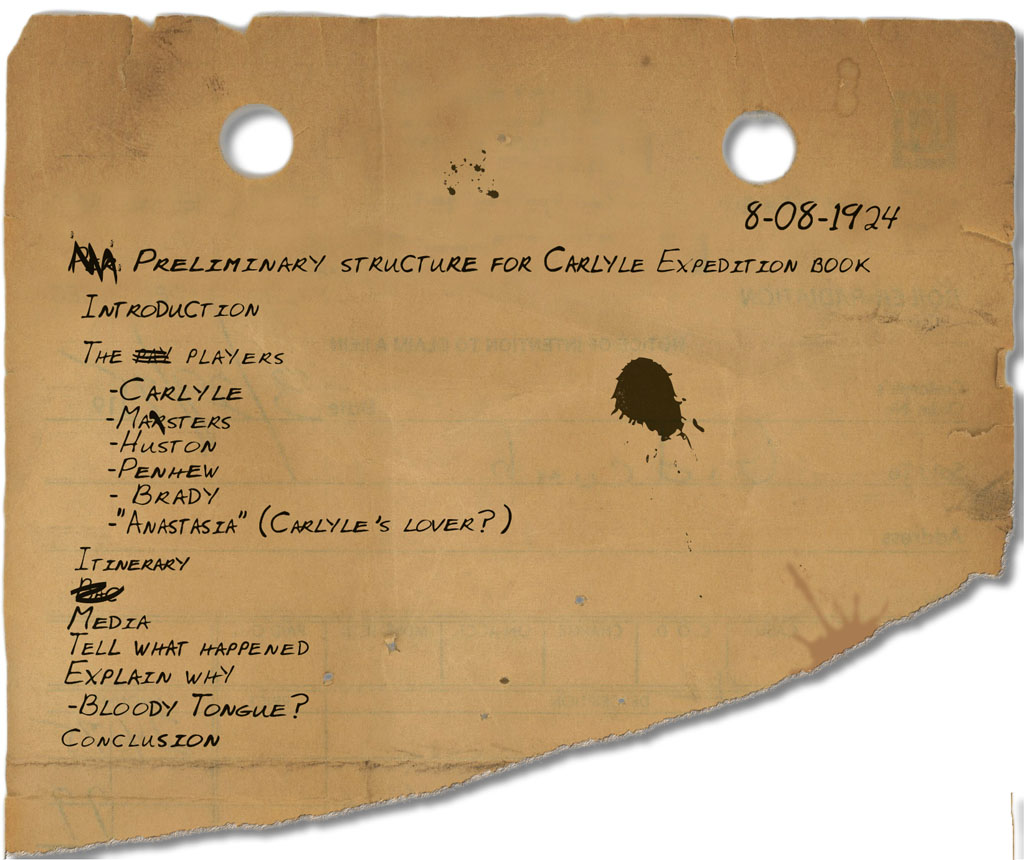 8-08-1924
Preliminary structure for Carlyle Expedition book
Introduction
The players
-Carlyle
-Masters
-Huston
-Penhew
- Brady
-"Anastasia" (Carlyle's lover?)
Itinerary
Media
Tell what happened
Explain why
-Bloody Tongue?
Conclusion